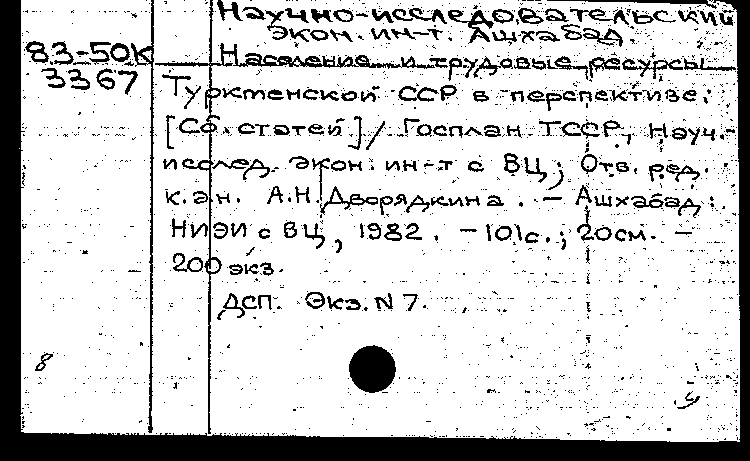 Научно-исследовательский
экон. ин-т. Ашхабад.
83-50К
3367
Население и трудовые ресурсы
Туркменской ССР в перспективе:
[Сб. статей] / Госплан ТССР, Науч.-
исслед. экон. ин-т с ВЦ; Отв. ред.
к.э.н. А.Н. Дворядкина. - Ашхабад:
НИЭИ с ВЦ, 1982. - 101с.; 20см. -
200 экз.
ДСП. Экз. N 7.
8